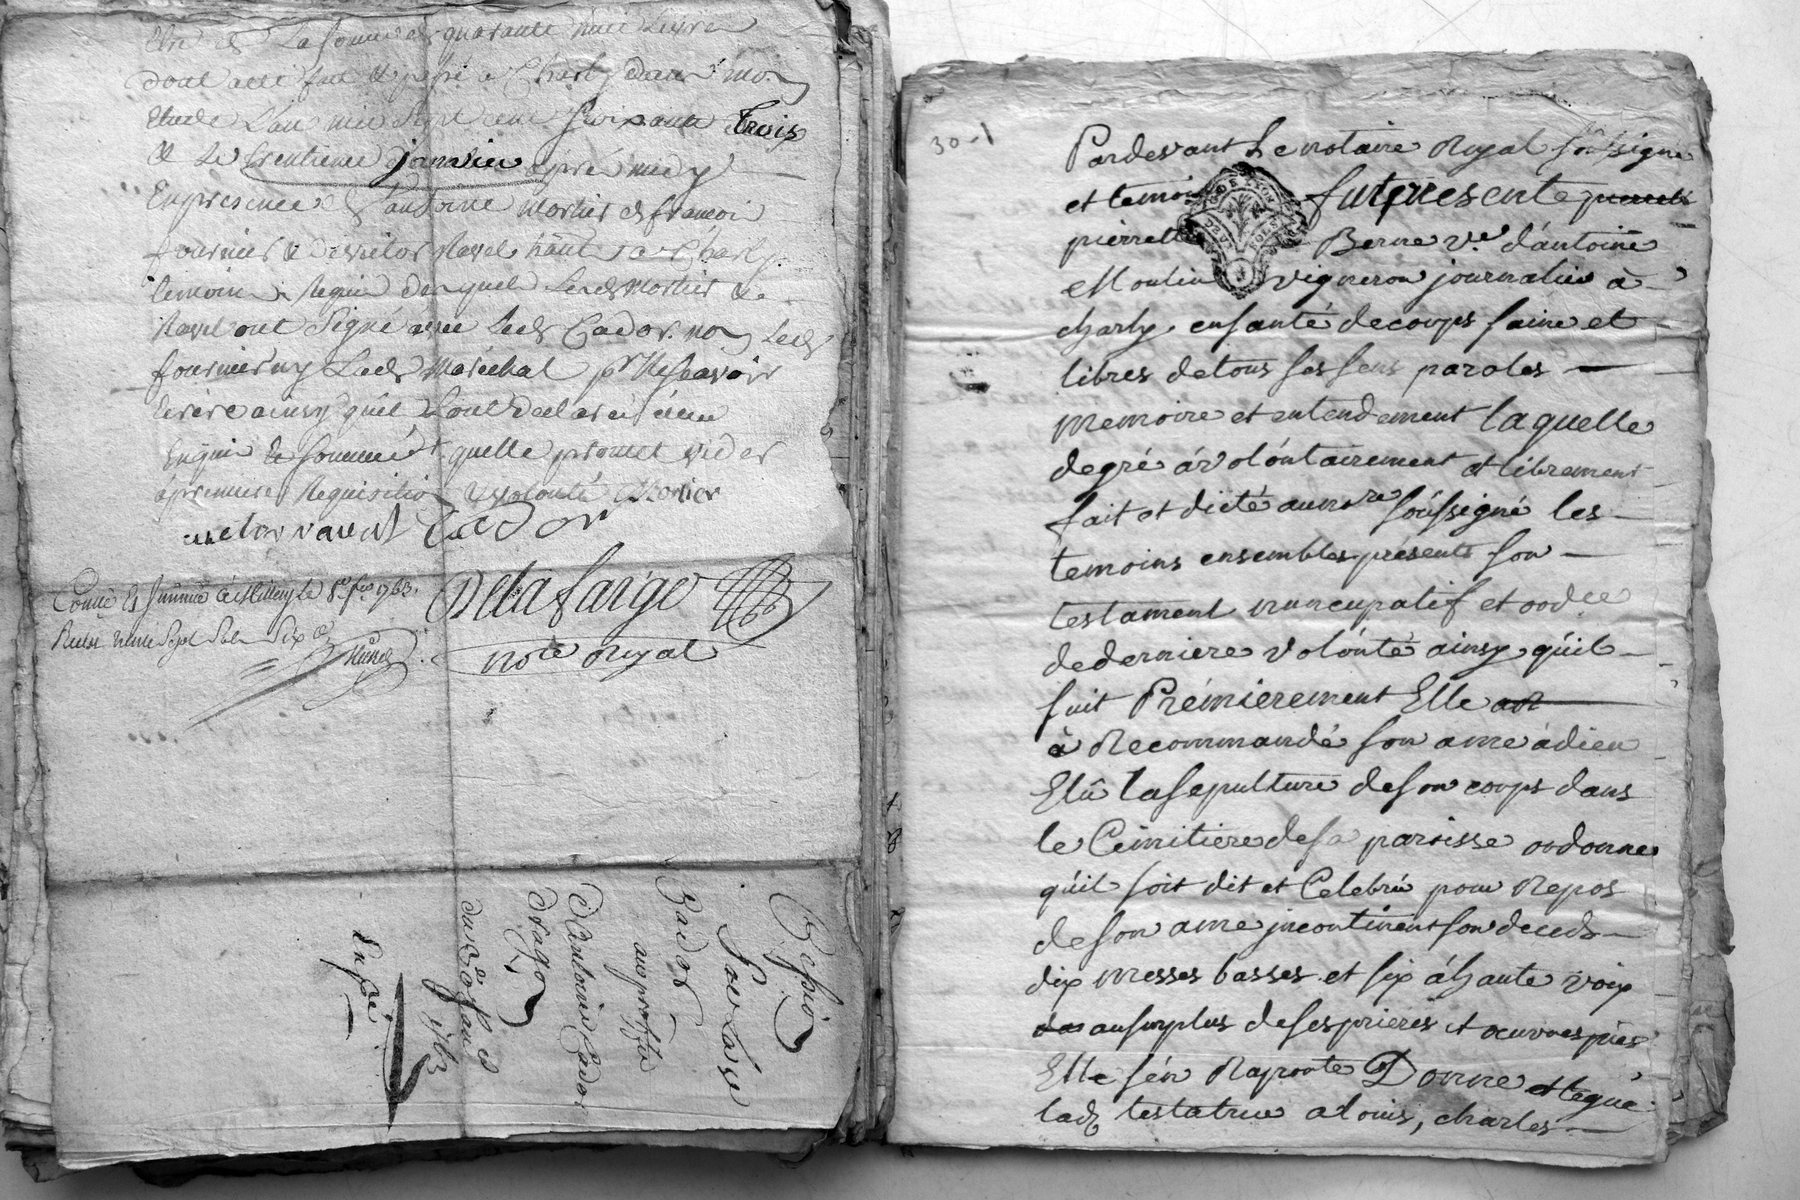 la somme de quarante huit livre
dont acte fait & passé a Charly dans mon
etude L'an mil Sept cent Soixante trois
& Le trentieme janvier après midy
En presence d'antoine mortier & françoi
fournier & Ravel habt a Charly
temoin Requis desquels Mortier &
Ravel ont Signé avec Ledt Cador non Ledt
fournier ny Ledt Maréchal pr ne sçavoir
Ecrire ainsy quil L'ont declaré
Enquis & Sommé quelle promet vider
a premiere Requisition & volonté Mortier
Cador
Delafarge
notre Royal
Controllé à Millery le 8e fer 1763.
Reçu Sept Sols Six d
Cador
au proffit
d'Antoine Cador
drago
du
1763
Expé
30-1
Pardevant Le notaire Royal soussigné
et temoins fut presente
pierrette Berne ve d'antoine
Moulin vigneron journalier à
charly, en santé de corps saine et
libres de tous ses sens paroles
memoire et entendement laquelle
de gré à volontairement et librement
fait et dicté au notre soussigné les
temoins ensembles présents son
testament nuncupatif et ordre
de derniere volonté ainsy qu'il
suit Prémierement Elle
à Recommandé son ame à dieu
Elû la sepulture de son corps dans
le Cimitiere de sa paroisse ordonne
qu'il soit dit et Celebré pour Repos
de son ame incontinent son deceds
dix messes basses et six à haute voix
au surplus de ses prieres et oeuvres pies
Elle s'en Raporte Donne et legue
lade testatrice a louis, charles